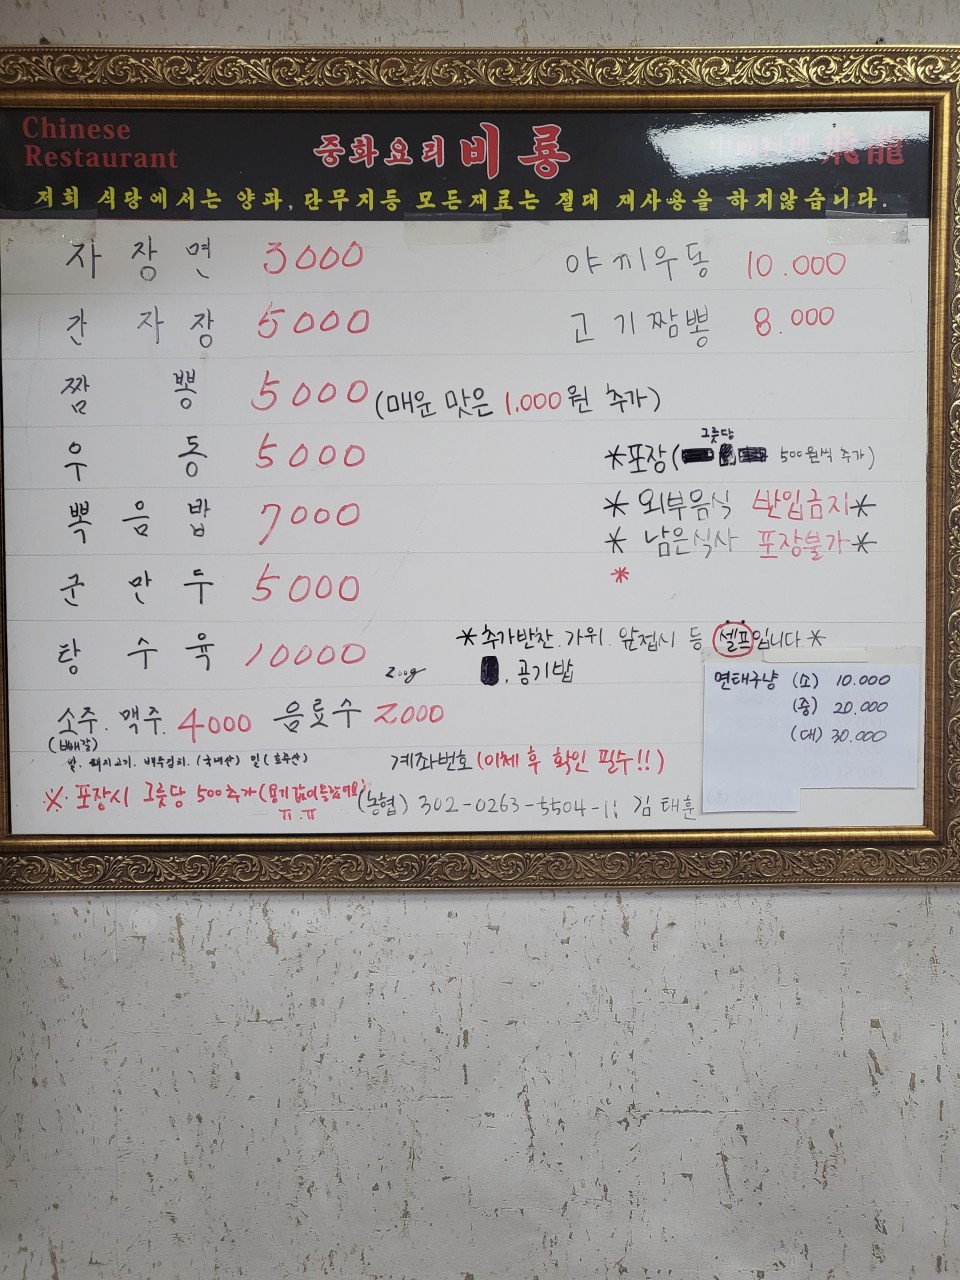 Chinese
Restaurant
중화요리 비룡
飛龍
저희 식당에서는 양파, 단무지등 모든재료는 절대 재사용을 하지않습니다.
자장면 3000
야끼우동 10.000
간자장 5000
고기짬뽕 8.000
짬뽕 5000 (매운 맛은 1.000원 추가)
우동 5000
그릇당
*포장( 500원씩 추가)
뽁음밥 7000
* 외부음식 반입금지*
* 남은식사 포장불가*
*
군만두 5000
탕수육 10000 200g
*추가반찬. 가위. 앞접시 등 셀프입니다.*
. 공기밥
면태구냥 (소) 10.000
(중) 20.000
(대) 30.000
소주. 맥주. 4000 음료수 2000
(빼갈)
쌀. 돼지고기. 배추김치. (국내산) 면 (호주산)
계좌번호 (이체 후 확인 필수!!)
※. 포장시 그릇당 500추가 (용기값이올랐어요)
ㅠ.ㅠ
(농협) 302-0263-5504-11 김태훈